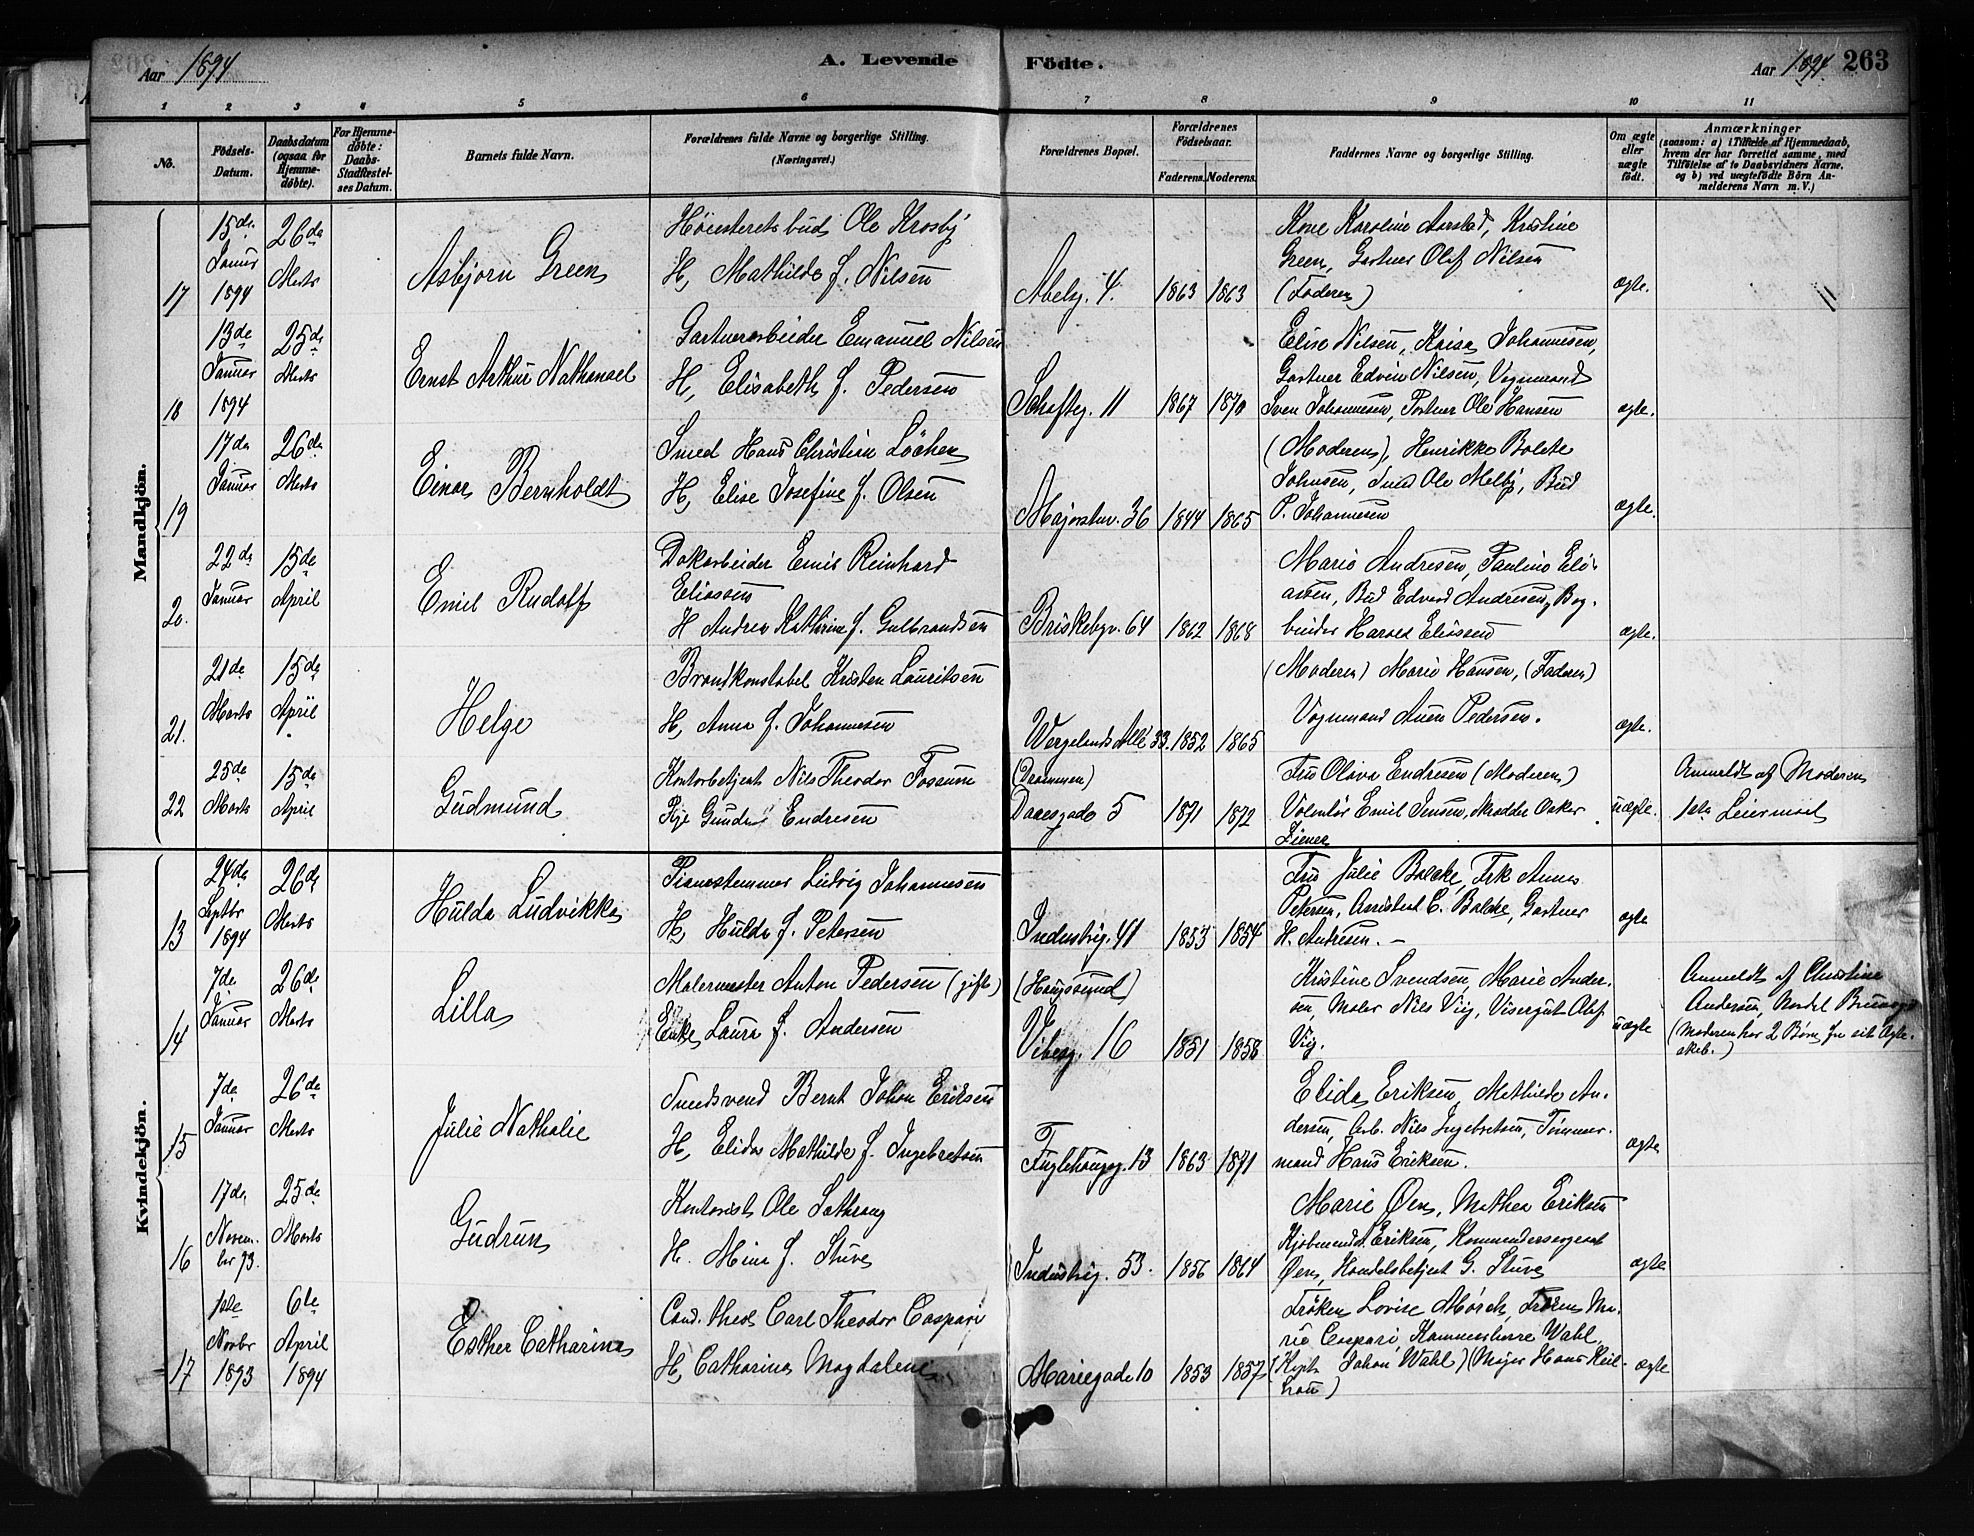 Aar 1894
A. Levende Födte.
Aar 1894. 263
1 2 3 4 5 6 7 8 9 10 11
No.
Födsels-
Datum.
Daabsdatum
(ogsaa for
Hjemme-
döbte).
For Hjemme-
döbte:
Daabs-
Stadfæstel-
ses Datum.
Barnets fulde Navn.
Forældrenes fulde Navne og borgerlige Stilling.
(Næringsvei.)
Forældrenes Bopæl.
Forældrenes
Födselsaar.
Faderens. Moderens.
Faddernes Navne og borgerlige Stilling.
Om ægte
eller
uægte
født.
Anmærkninger
(saasom: a) i Tilfælde af Hjemmedaab,
hvem der har forrettet samme, med
Tilføielse af to Daabsvidners Navne,
og b) ved uægtefødte Börn An-
melderens Navn m. V.)
Mandkjön.
17
15de
Januar
1894
26de
Marts
Asbjørn Green
Høiesteretsbud Ole Krosby
H, Mathilde f. Nilsen
Abelsg. 4.
1863 1863
Kone Karoline Aarstad, Kristine
Green, Gartner Olaf Nilsen
(Faderen)
ægte.
18
13de
Januar
1894
25de
Marts
Ernst Arthur Nathanael
Gartnerarbeider Emanuel Nilsen
H, Elisabeth f. Pedersen
Schaftg. 11
1867 1870
Elise Nilsen, Kaisa Johannesen,
Gartner Edvin Nilsen, Vognmand
Sven Johannesen, Portner Ole Hansen
ægte.
19
17de
Januar
26de
Marts
Einar Bernholdt
Smed Hans Christian Löchen
H, Elise Josefine f. Olsen
Majorstuv. 36
1844 1865
(Moderen), Henrikke Bolete
Johnsen, Smed Ole Melby, Bud
P. Johannesen
ægte.
20.
22de
Januar
15de
April
Emil Rudolf
Dokarbeider Emil Reinhard
Eliassen
H Andrea Kathrine f. Gulbrandsen
Briskebyv. 64
1862 1868
Marie Andresen, Pauline Eli-
assen, Bud Edvard Andresen, Bog-
binder Harald Eliassen
ægte.
21.
21de
Marts
15de
April
Helge
Brandkonstabel Kristen Lauritsen
H, Anna f. Johannesen
Wergelands Allé 33.
1852 1865
(Moderen) Marie Hansen, (Faderen)
Vognmand Auen Pedersen.
ægte.
22
25de
Marts
15de
April
Gudmund
Kontorbetjent Nils Theodor Fossum
Pige Gunda Endresen
(Drammen)
Daaesgade 5
1871 1872
Fru Olava Endresen (Moderen)
Volontör Emil Jensen, Skrædder Oskar
Ziener
uægte.
Anmeldt af Moderen
1ste Leiermaal
Kvindekjön.
13
24de
Septbr
1894
26de
Marts
Hulda Ludvikka
Pianostemmer Ludvig Johannesen
H, Hulda f. Petersen
Industrig. 41
1853 1854
Fru Julie Balcke, Frk Anna
Petersen, Assistent C. Balcke, Gartner
H. Andresen. —
ægte
14
7de
Januar
26de
Marts
Lilla
Malermester Anton Pedersen (gift)
Enke Laura f. Andersen
(Haugesund)
Vibesg. 16
1851 1858
Kristine Svendsen, Marie Ander-
sen, Maler Nils Viig, Visergut Olaf
Viig.
uægte
Anmeldt af Christine
Andersen,
(Moderen har 2 Børn fra sit Ægte-
skab.)
15
7de
Januar
26de
Marts
Julie Nathalie
Smedsvend Bernt Johan Eriksen
H, Elida Mathilde f. Ingebretsen
Fuglehaugg. 13
1863 1871
Elida Eriksen, Mathilde An-
dersen, Arb. Nils Ingebretsen, Tömmer-
mand Hans Eriksen.
ægte
16
17de
Novem-
ber 93.
25de
Marts
Gudrun
Kontorist Ole Sathrang
H. Mina f. Stuve
Industrig. 53.
1856 1864
Marie Øen, Mathea Eriksen
Kjøbmand Eriksen, Kommandersergeant
Øen, Handelsbetjent G. Stuve
ægte
17
1ste
Novbr
1893
6te
April
1894
Esther Catharina
Cand. theol. Carl Theodor Caspari
H, Catharina Magdalene
Mariegade 10
1853 1857
Fröken Lovise Mörch, Fröken Ma-
rie Caspari, Kammerherre Wahl,
(Kapt. Johan Wahl) (Major Hans Keil-
hau)
ægte